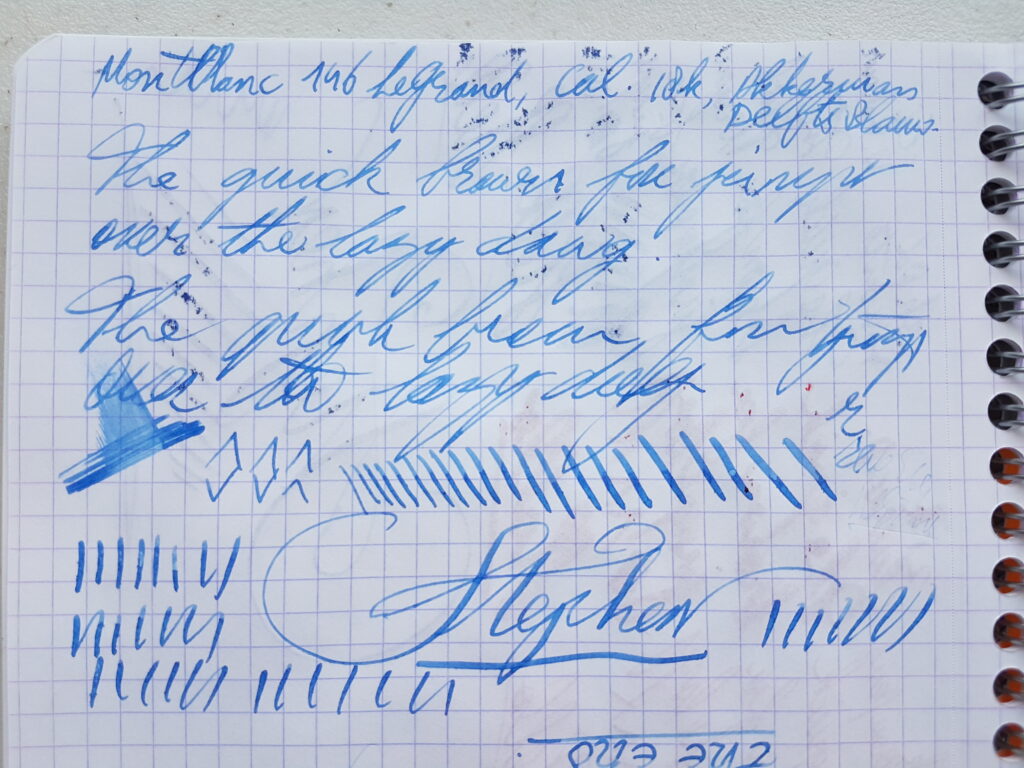 Montblanc 146 LeGrand, Cal. 18k, Akkerman
Delfts Blauw
The quick brown fox jumps
over the lazy dawg
The quick brown fox jumps
over the lazy
Stephen
the end